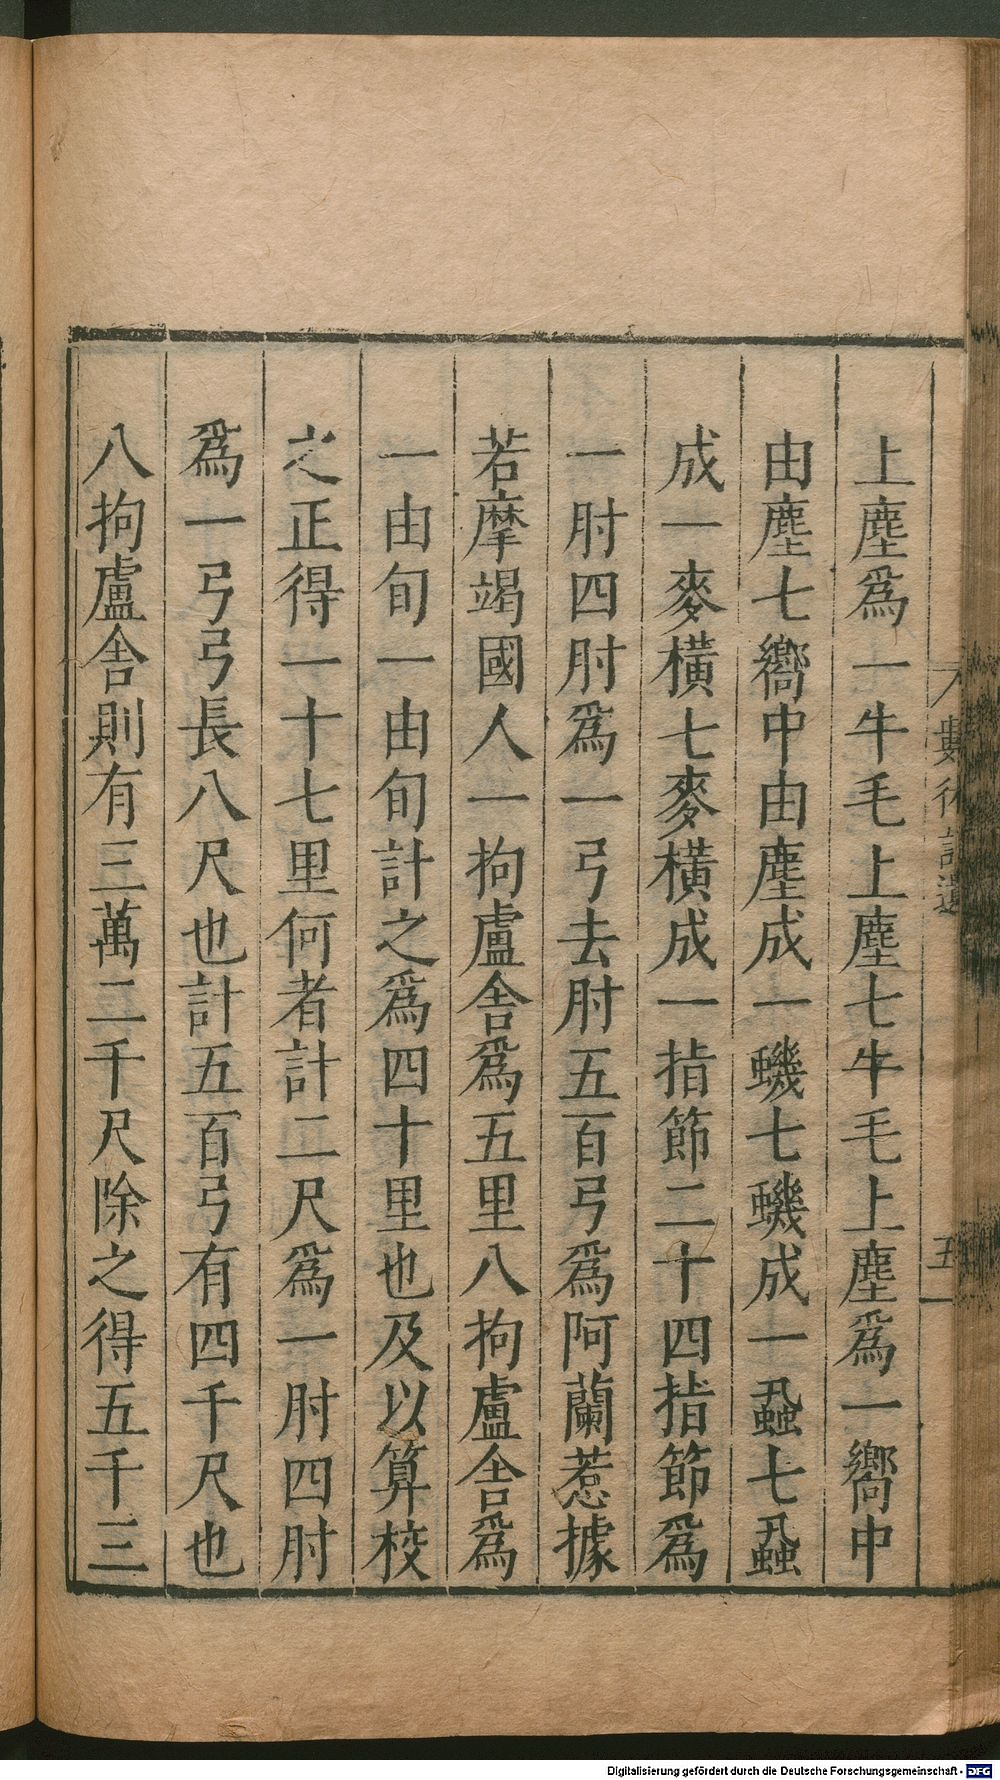 數術記遺
五
上塵爲一牛毛上塵七牛毛上塵爲一嚮中
由塵七嚮中由塵成一蟣七蟣成一蝨七蝨
成一麥橫七麥橫成一指節二十四指節爲
一肘四肘爲一弓去肘五百弓爲阿蘭惹據
若摩竭國人一拘盧舍爲五里八拘盧舍爲
一由旬一由旬計之爲四十里也及以算校
之正得一十七里何者計二尺爲一肘四肘
爲一弓弓長八尺也計五百弓有四千尺也
八拘盧舍則有三萬二千尺除之得五千三
Digitalisierung gefördert durch die Deutsche Forschungsgemeinschaft - DFG